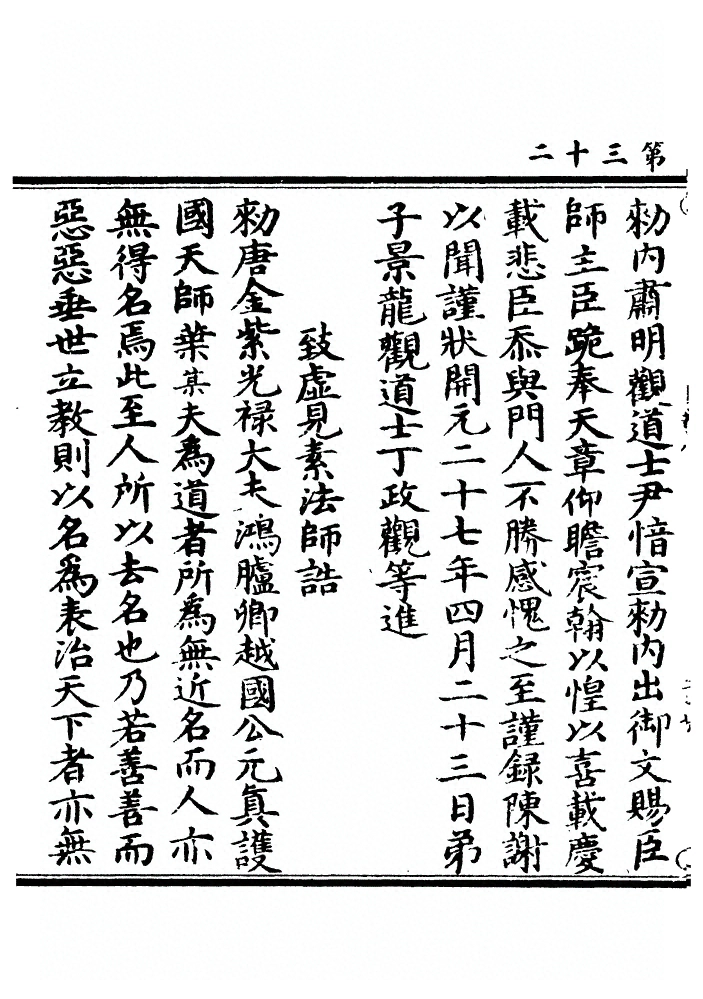 第三十二
勑內肅明觀道士尹愔宣勑內出御文賜臣
師主臣跪奉天章仰瞻宸翰以惶以喜載慶
載悲臣忝與門人不勝感愧之至謹録陳謝
以聞謹狀開元二十七年四月二十三日弟
子景龍觀道士丁政觀等進
致虛見素法師誥
勑唐金紫光禄大夫鴻臚卿越國公元真護
國天師葉某夫為道者所為無近名而人亦
無得名焉此至人所以去名也乃若善善而
惡惡垂世立教則以名為表治天下者亦無